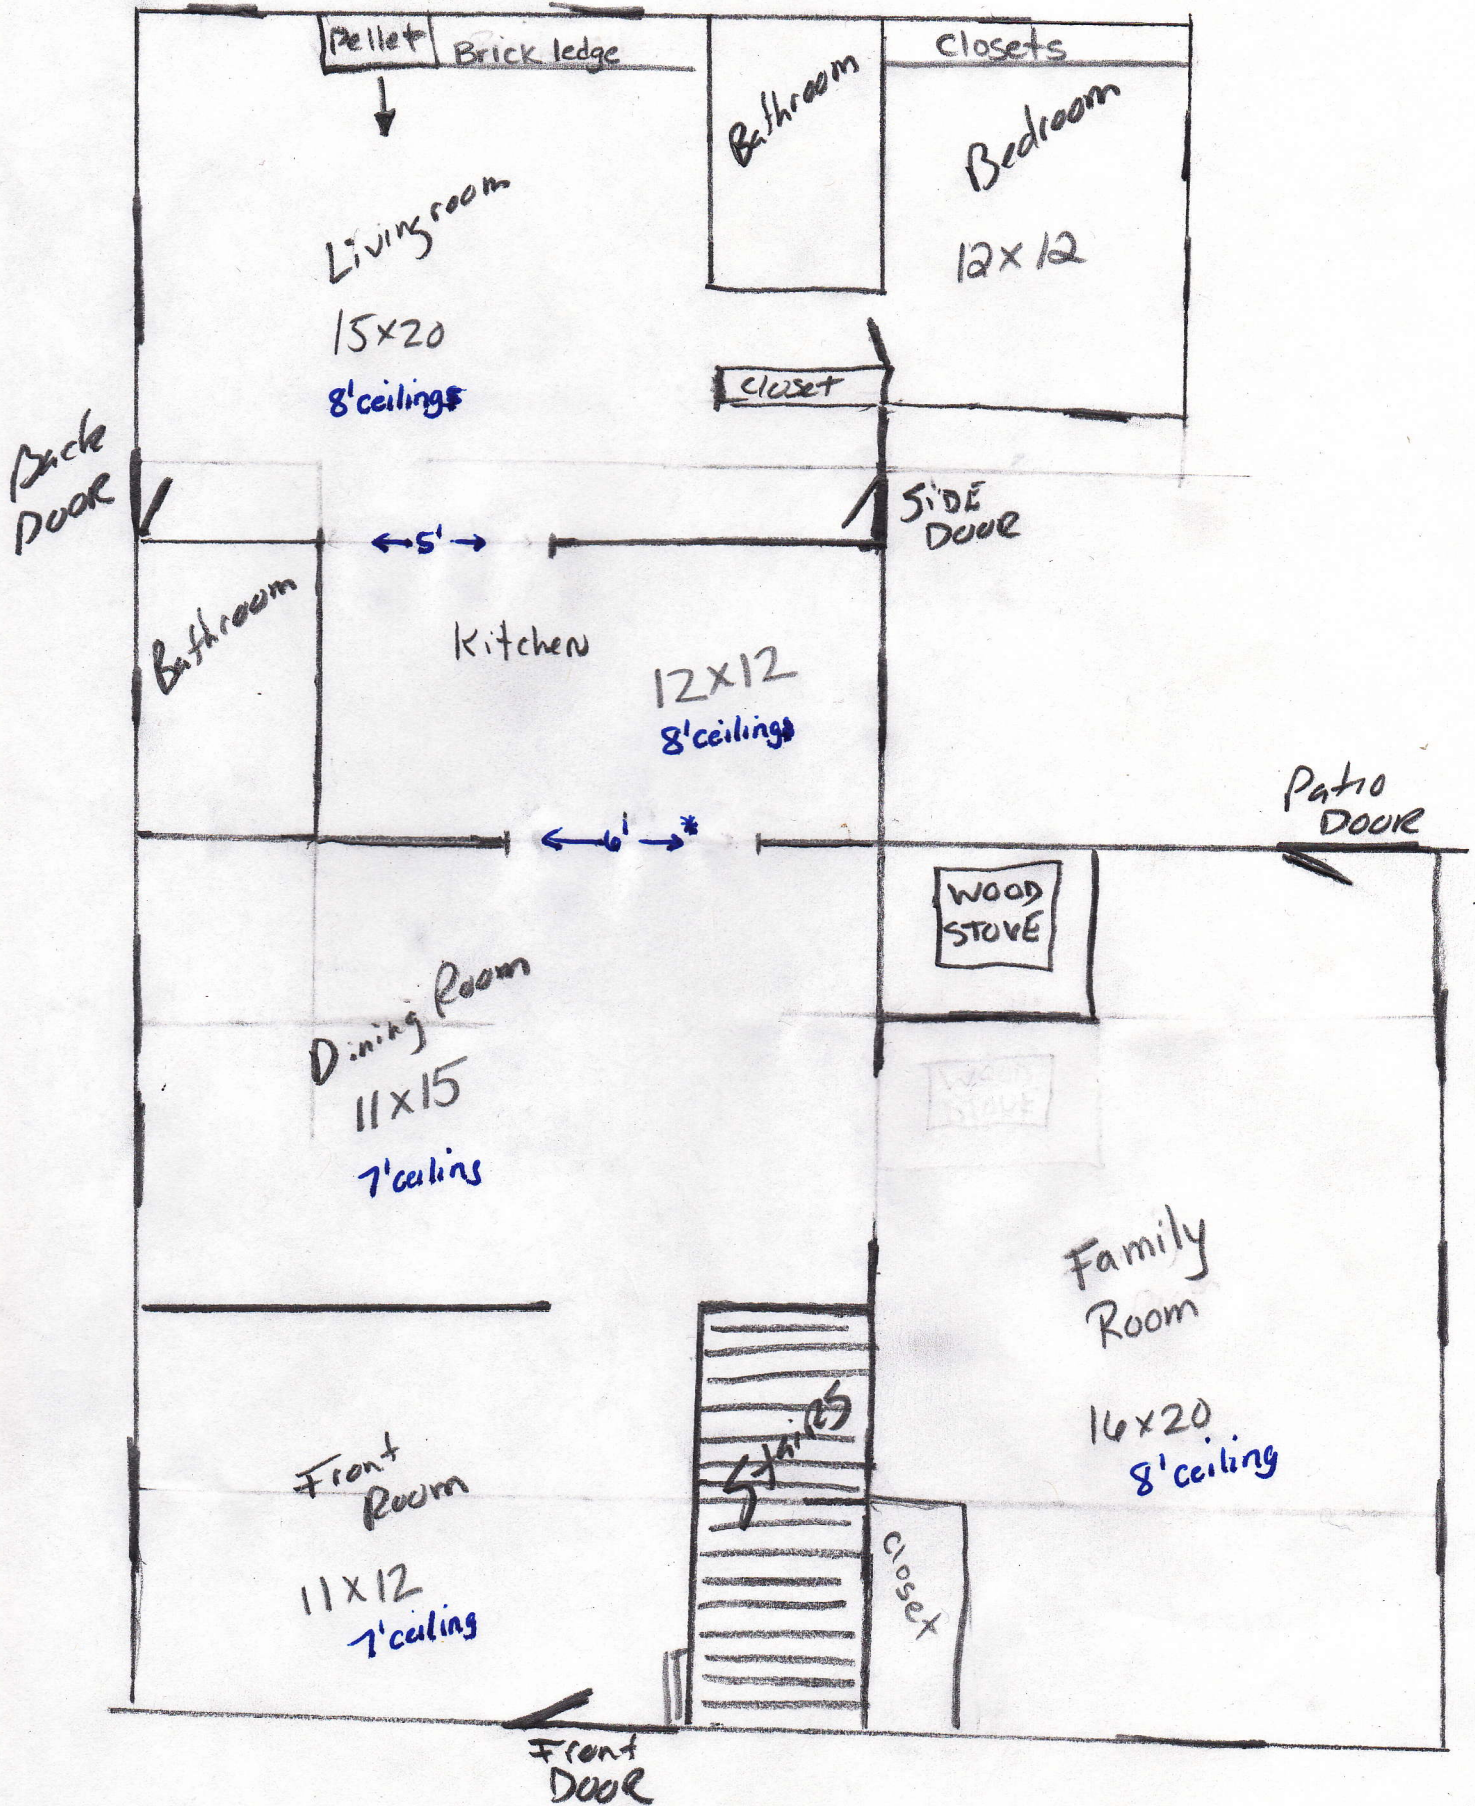 Pellet
Brick ledge
Closets
Bathroom
Bedroom
12x12
Livingroom
15x20
8'ceilings
closet
Back
DOOR
SiDE
DOOR
5'
Bathroom
Kitchen
12x12
8'ceilings
Patio
DOOR
6' *
WOOD
STOVE
Dining Room
11x15
7'ceiling
Family
Room
16x20
8'ceiling
Stairs
Front
Room
11x12
7'ceiling
closet
Front
DOOR